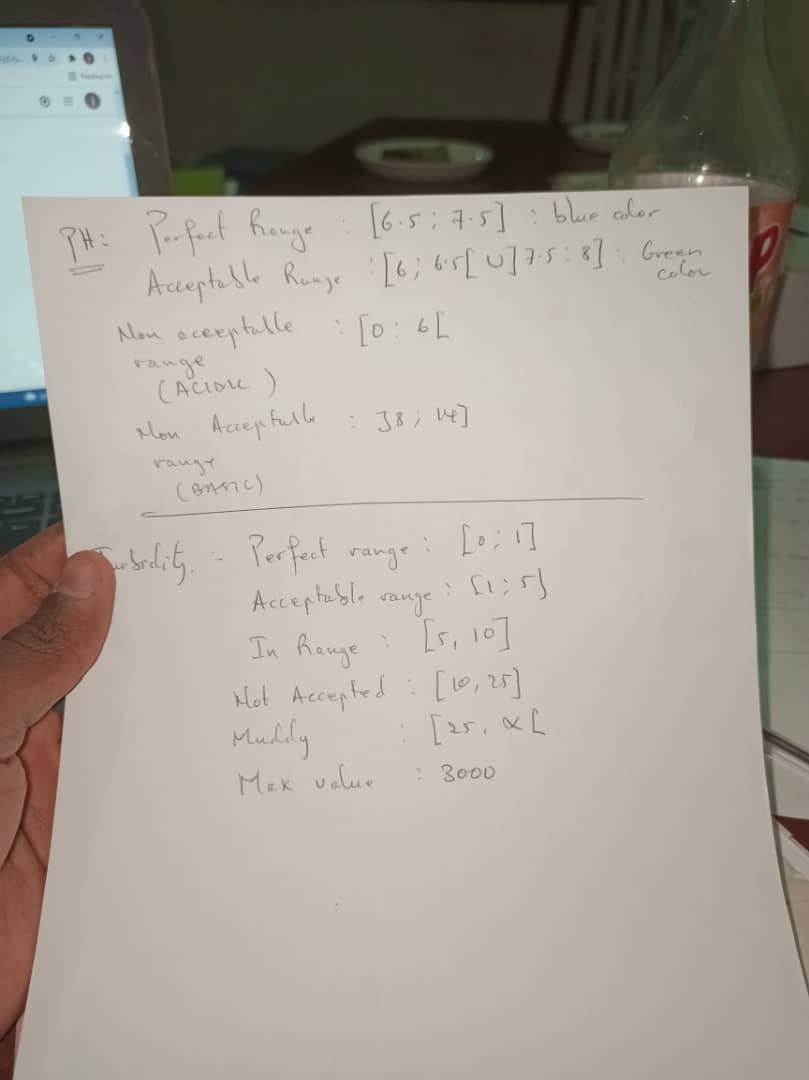 PH: Perfect Range : [6.5 ; 7.5] : blue color
Acceptable Range : [6 ; 6.5[ U ] 7.5 : 8] : Green color
Non acceptable : [0 : 6[
range
(ACIDIC)
Non Acceptable : ]8 ; 14]
range
(BASIC)
Turbidity :- Perfect range : [0 ; 1]
Acceptable range : [1 ; 5]
In Range : [5, 10]
Not Accepted : [10, 25]
Muddy : [25, ∝ [
Max value : 3000